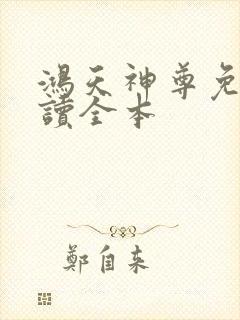 鴻天神尊免
讀全本
鄭自来